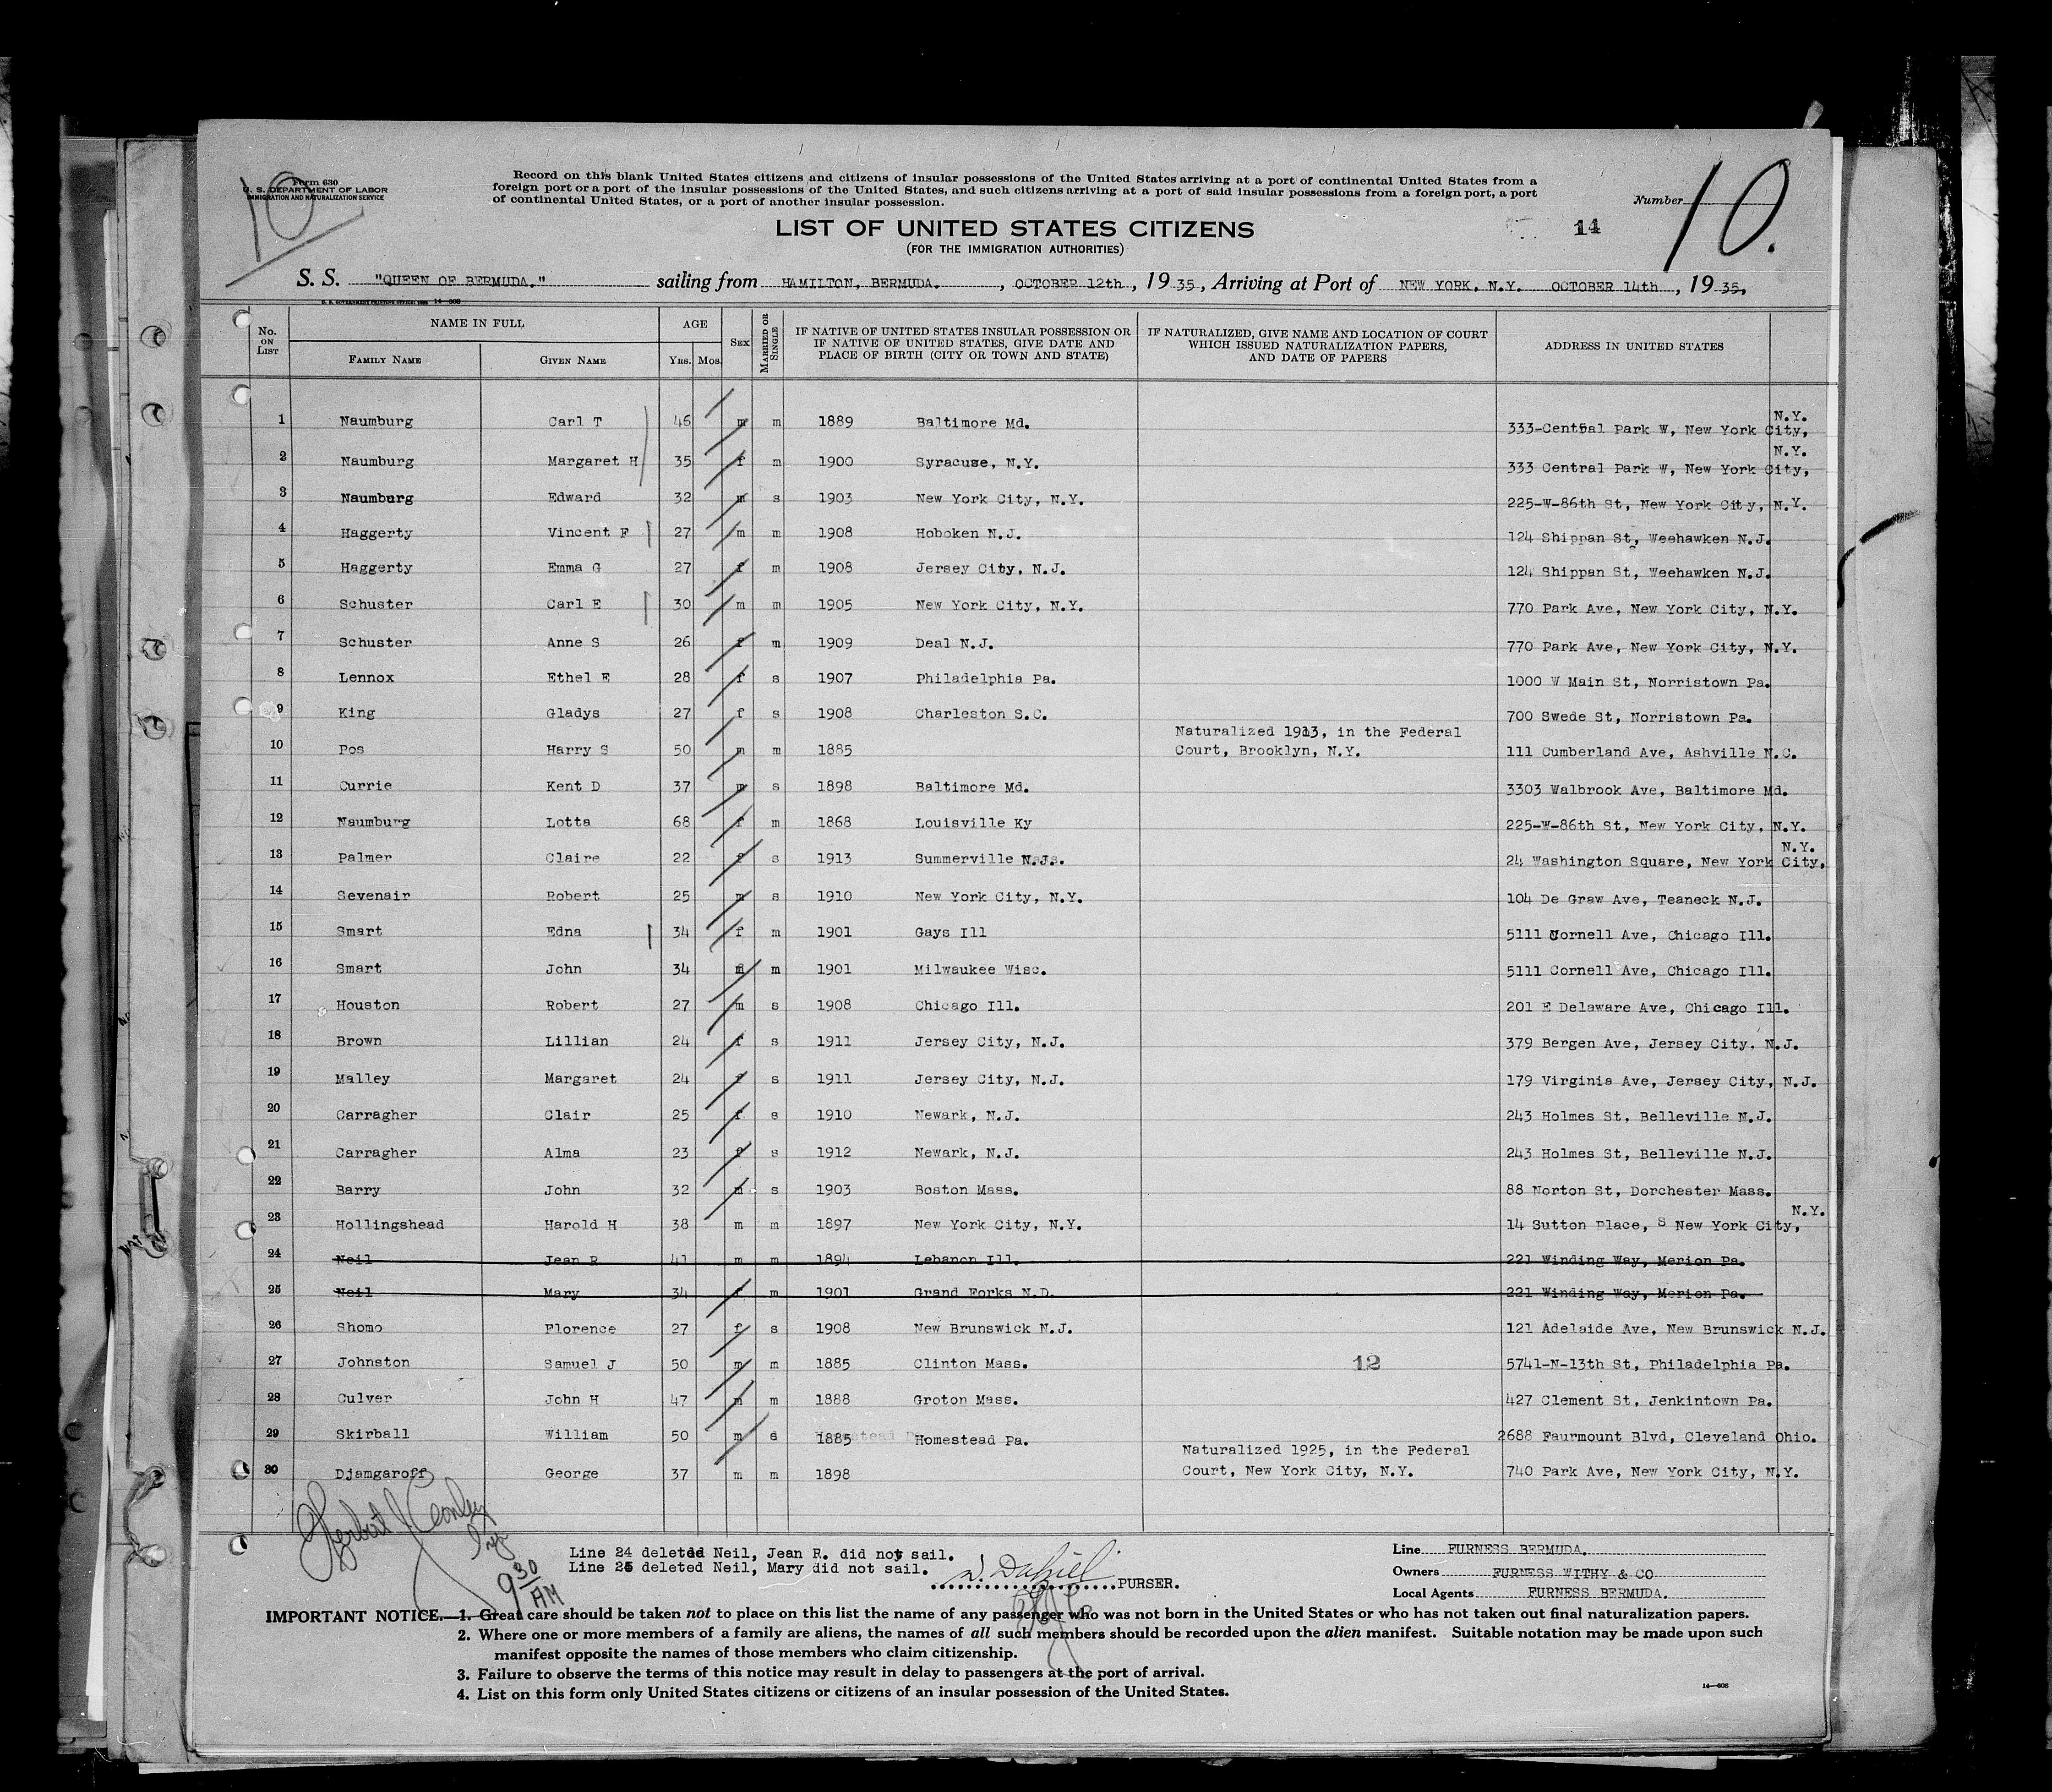 Form 630
U. S. DEPARTMENT OF LABOR
IMMIGRATION AND NATURALIZATION SERVICE
10
Record on this blank United States citizens and citizens of insular possessions of the United States arriving at a port of continental United States from a
foreign port or a port of the insular possessions of the United States, and such citizens arriving at a port of said insular possessions from a foreign port, a port
of continental United States, or a port of another insular possession.
Number 10.
LIST OF UNITED STATES CITIZENS
14
(FOR THE IMMIGRATION AUTHORITIES)
S. S. "QUEEN OF BERMUDA." sailing from HAMILTON, BERMUDA. , OCTOBER 12th , 19 35 , Arriving at Port of NEW YORK, N.Y. OCTOBER 14th , 19 35.
No. ON LIST NAME IN FULL AGE SEX MARRIED OR SINGLE IF NATIVE OF UNITED STATES INSULAR POSSESSION OR IF NATIVE OF UNITED STATES, GIVE DATE AND PLACE OF BIRTH (CITY OR TOWN AND STATE) IF NATURALIZED, GIVE NAME AND LOCATION OF COURT WHICH ISSUED NATURALIZATION PAPERS, AND DATE OF PAPERS ADDRESS IN UNITED STATES
FAMILY NAME GIVEN NAME YRS. MOS.
1 Naumburg Carl T 46 m m 1889 Baltimore Md. 333-Central Park W, New York City, N.Y.
2 Naumburg Margaret H 35 f m 1900 Syracuse, N.Y. 333 Central Park W, New York City, N.Y.
3 Naumburg Edward 32 m s 1903 New York City, N.Y. 225-W-86th St, New York City, N.Y.
4 Haggerty Vincent F 27 m m 1908 Hoboken N.J. 124 Shippan St, Weehawken N.J.
5 Haggerty Emma G 27 f m 1908 Jersey City, N.J. 124 Shippan St, Weehawken N.J.
6 Schuster Carl E 30 m m 1905 New York City, N.Y. 770 Park Ave, New York City, N.Y.
7 Schuster Anne S 26 f m 1909 Deal N.J. 770 Park Ave, New York City, N.Y.
8 Lennox Ethel E 28 f s 1907 Philadelphia Pa. 1000 W Main St, Norristown Pa.
9 King Gladys 27 f s 1908 Charleston S.C. 700 Swede St, Norristown Pa.
Naturalized 1913, in the Federal
10 Pos Harry S 50 m m 1885 Court, Brooklyn, N.Y. 111 Cumberland Ave, Ashville N.C.
11 Currie Kent D 37 m s 1898 Baltimore Md. 3303 Walbrook Ave, Baltimore Md.
12 Naumburg Lotta 68 f m 1868 Louisville Ky 225-W-86th St, New York City, N.Y.
13 Palmer Claire 22 f s 1913 Summerville N.J. 24 Washington Square, New York City, N.Y.
14 Sevenair Robert 25 m s 1910 New York City, N.Y. 104 De Graw Ave, Teaneck N.J.
15 Smart Edna 34 f m 1901 Gays Ill 5111 Cornell Ave, Chicago Ill.
16 Smart John 34 m m 1901 Milwaukee Wisc. 5111 Cornell Ave, Chicago Ill.
17 Houston Robert 27 m s 1908 Chicago Ill. 201 E Delaware Ave, Chicago Ill.
18 Brown Lillian 24 f s 1911 Jersey City, N.J. 379 Bergen Ave, Jersey City, N.J.
19 Malley Margaret 24 f s 1911 Jersey City, N.J. 179 Virginia Ave, Jersey City, N.J.
20 Carragher Clair 25 f s 1910 Newark, N.J. 243 Holmes St, Belleville N.J.
21 Carragher Alma 23 f s 1912 Newark, N.J. 243 Holmes St, Belleville N.J.
22 Barry John 32 m s 1903 Boston Mass. 88 Norton St, Dorchester Mass.
23 Hollingshead Harold H 38 m m 1897 New York City, N.Y. 14 Sutton Place, S New York City, N.Y.
24 Neil Jean R 41 m m 1894 Lebanon Ill. 221 Winding Way, Merion Pa.
25 Neil Mary 34 f m 1901 Grand Forks N.D. 221 Winding Way, Merion Pa.
26 Shomo Florence 27 f s 1908 New Brunswick N.J. 121 Adelaide Ave, New Brunswick N.J.
27 Johnston Samuel J 50 m m 1885 Clinton Mass. 12 5741-N-13th St, Philadelphia Pa.
28 Culver John H 47 m m 1888 Groton Mass. 427 Clement St, Jenkintown Pa.
29 Skirball William 50 m s 1885 Homestead Pa. 2688 Faurmount Blvd, Cleveland Ohio.
Naturalized 1925, in the Federal
30 Djamgaroff George 37 m m 1898 Court, New York City, N.Y. 740 Park Ave, New York City, N.Y.
9 30 AM
Line 24 deleted Neil, Jean R. did not sail.
Line 25 deleted Neil, Mary did not sail.
PURSER.
Line FURNESS BERMUDA.
Owners FURNESS WITHY & CO
Local Agents FURNESS BERMUDA.
IMPORTANT NOTICE.—1. Great care should be taken not to place on this list the name of any passenger who was not born in the United States or who has not taken out final naturalization papers.
2. Where one or more members of a family are aliens, the names of all such members should be recorded upon the alien manifest. Suitable notation may be made upon such
manifest opposite the names of those members who claim citizenship.
3. Failure to observe the terms of this notice may result in delay to passengers at the port of arrival.
4. List on this form only United States citizens or citizens of an insular possession of the United States.
14—608